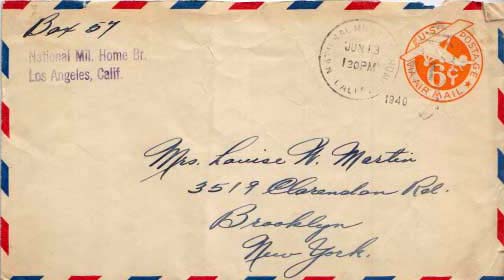 Box 57
National Mil. Home Br.
Los Angeles, Calif.
NATIONAL
JUN 13
130PM
CALIF.
1940
U·S· POSTAGE
6¢
VIA·AIR MAIL
Mrs. Louise W. Martin
3519 Clarendon Rd.
Brooklyn
New York.